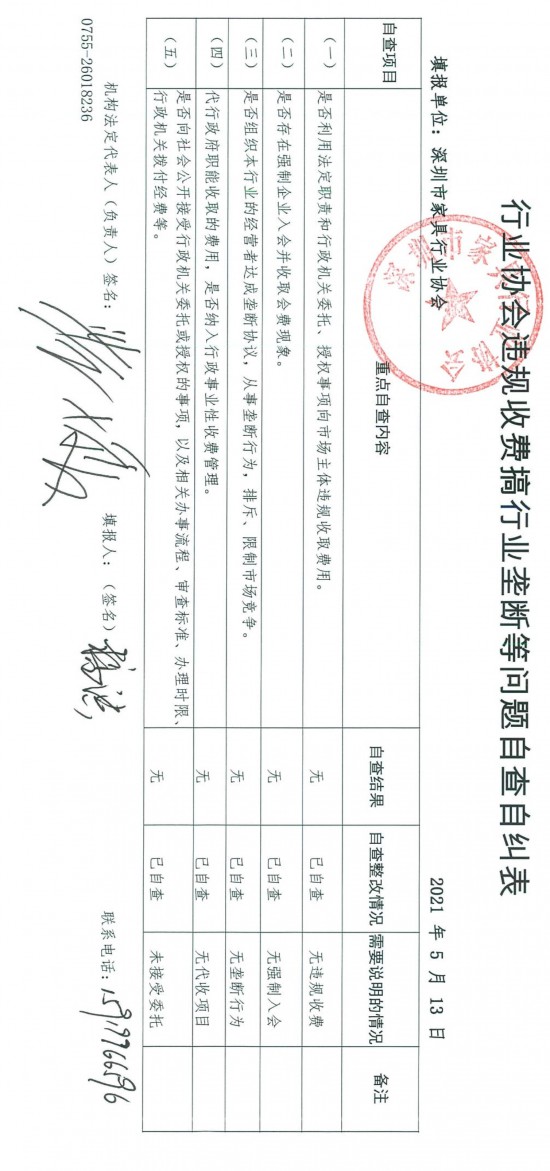 行业协会违规收费搞行业垄断等问题自查自纠表
填报单位：深圳市家具行业协会 2021 年 5 月 13 日
自查项目 重点自查内容 自查结果 自查整改情况 需要说明的情况 备注
（一） 是否利用法定职责和行政机关委托、授权事项向市场主体违规收取费用。 无 已自查 无违规收费
（二） 是否存在强制企业入会并收取会费现象。 无 已自查 无强制入会
（三） 是否组织本行业的经营者达成垄断协议，从事垄断行为，排斥、限制市场竞争。 无 已自查 无垄断行为
（四） 代行政府职能收取的费用，是否纳入行政事业性收费管理。 无 已自查 无代收项目
（五） 是否向社会公开接受行政机关委托或授权的事项，以及相关办事流程、审查标准、办理时限、 无 已自查 未接受委托
行政机关拨付经费等。
机构法定代表人（负责人）签名： 填报人：（签名） 联系电话：15919966596
0755-26018236